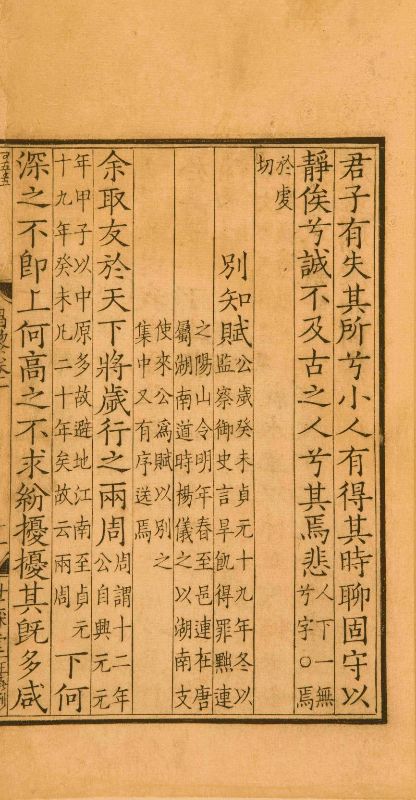 君子有失其所兮小人有得其時聊固守以
靜俟兮誠不及古之人兮其焉悲人下一無
兮字○焉
於虔
切
別知賦公歲癸未貞元十九年冬以
監察御史言旱飢得罪黜連
之陽山令明年春至邑連在唐
屬湖南道時楊儀之以湖南支
使來公爲賦以別之
集中又有序送焉
余取友於天下將歲行之兩周周謂十二年
公自興元元
年甲子以中原多故避地江南至貞元
十九年癸未凡二十年矣故云兩周下何
深之不卽上何高之不求紛擾擾其旣多咸